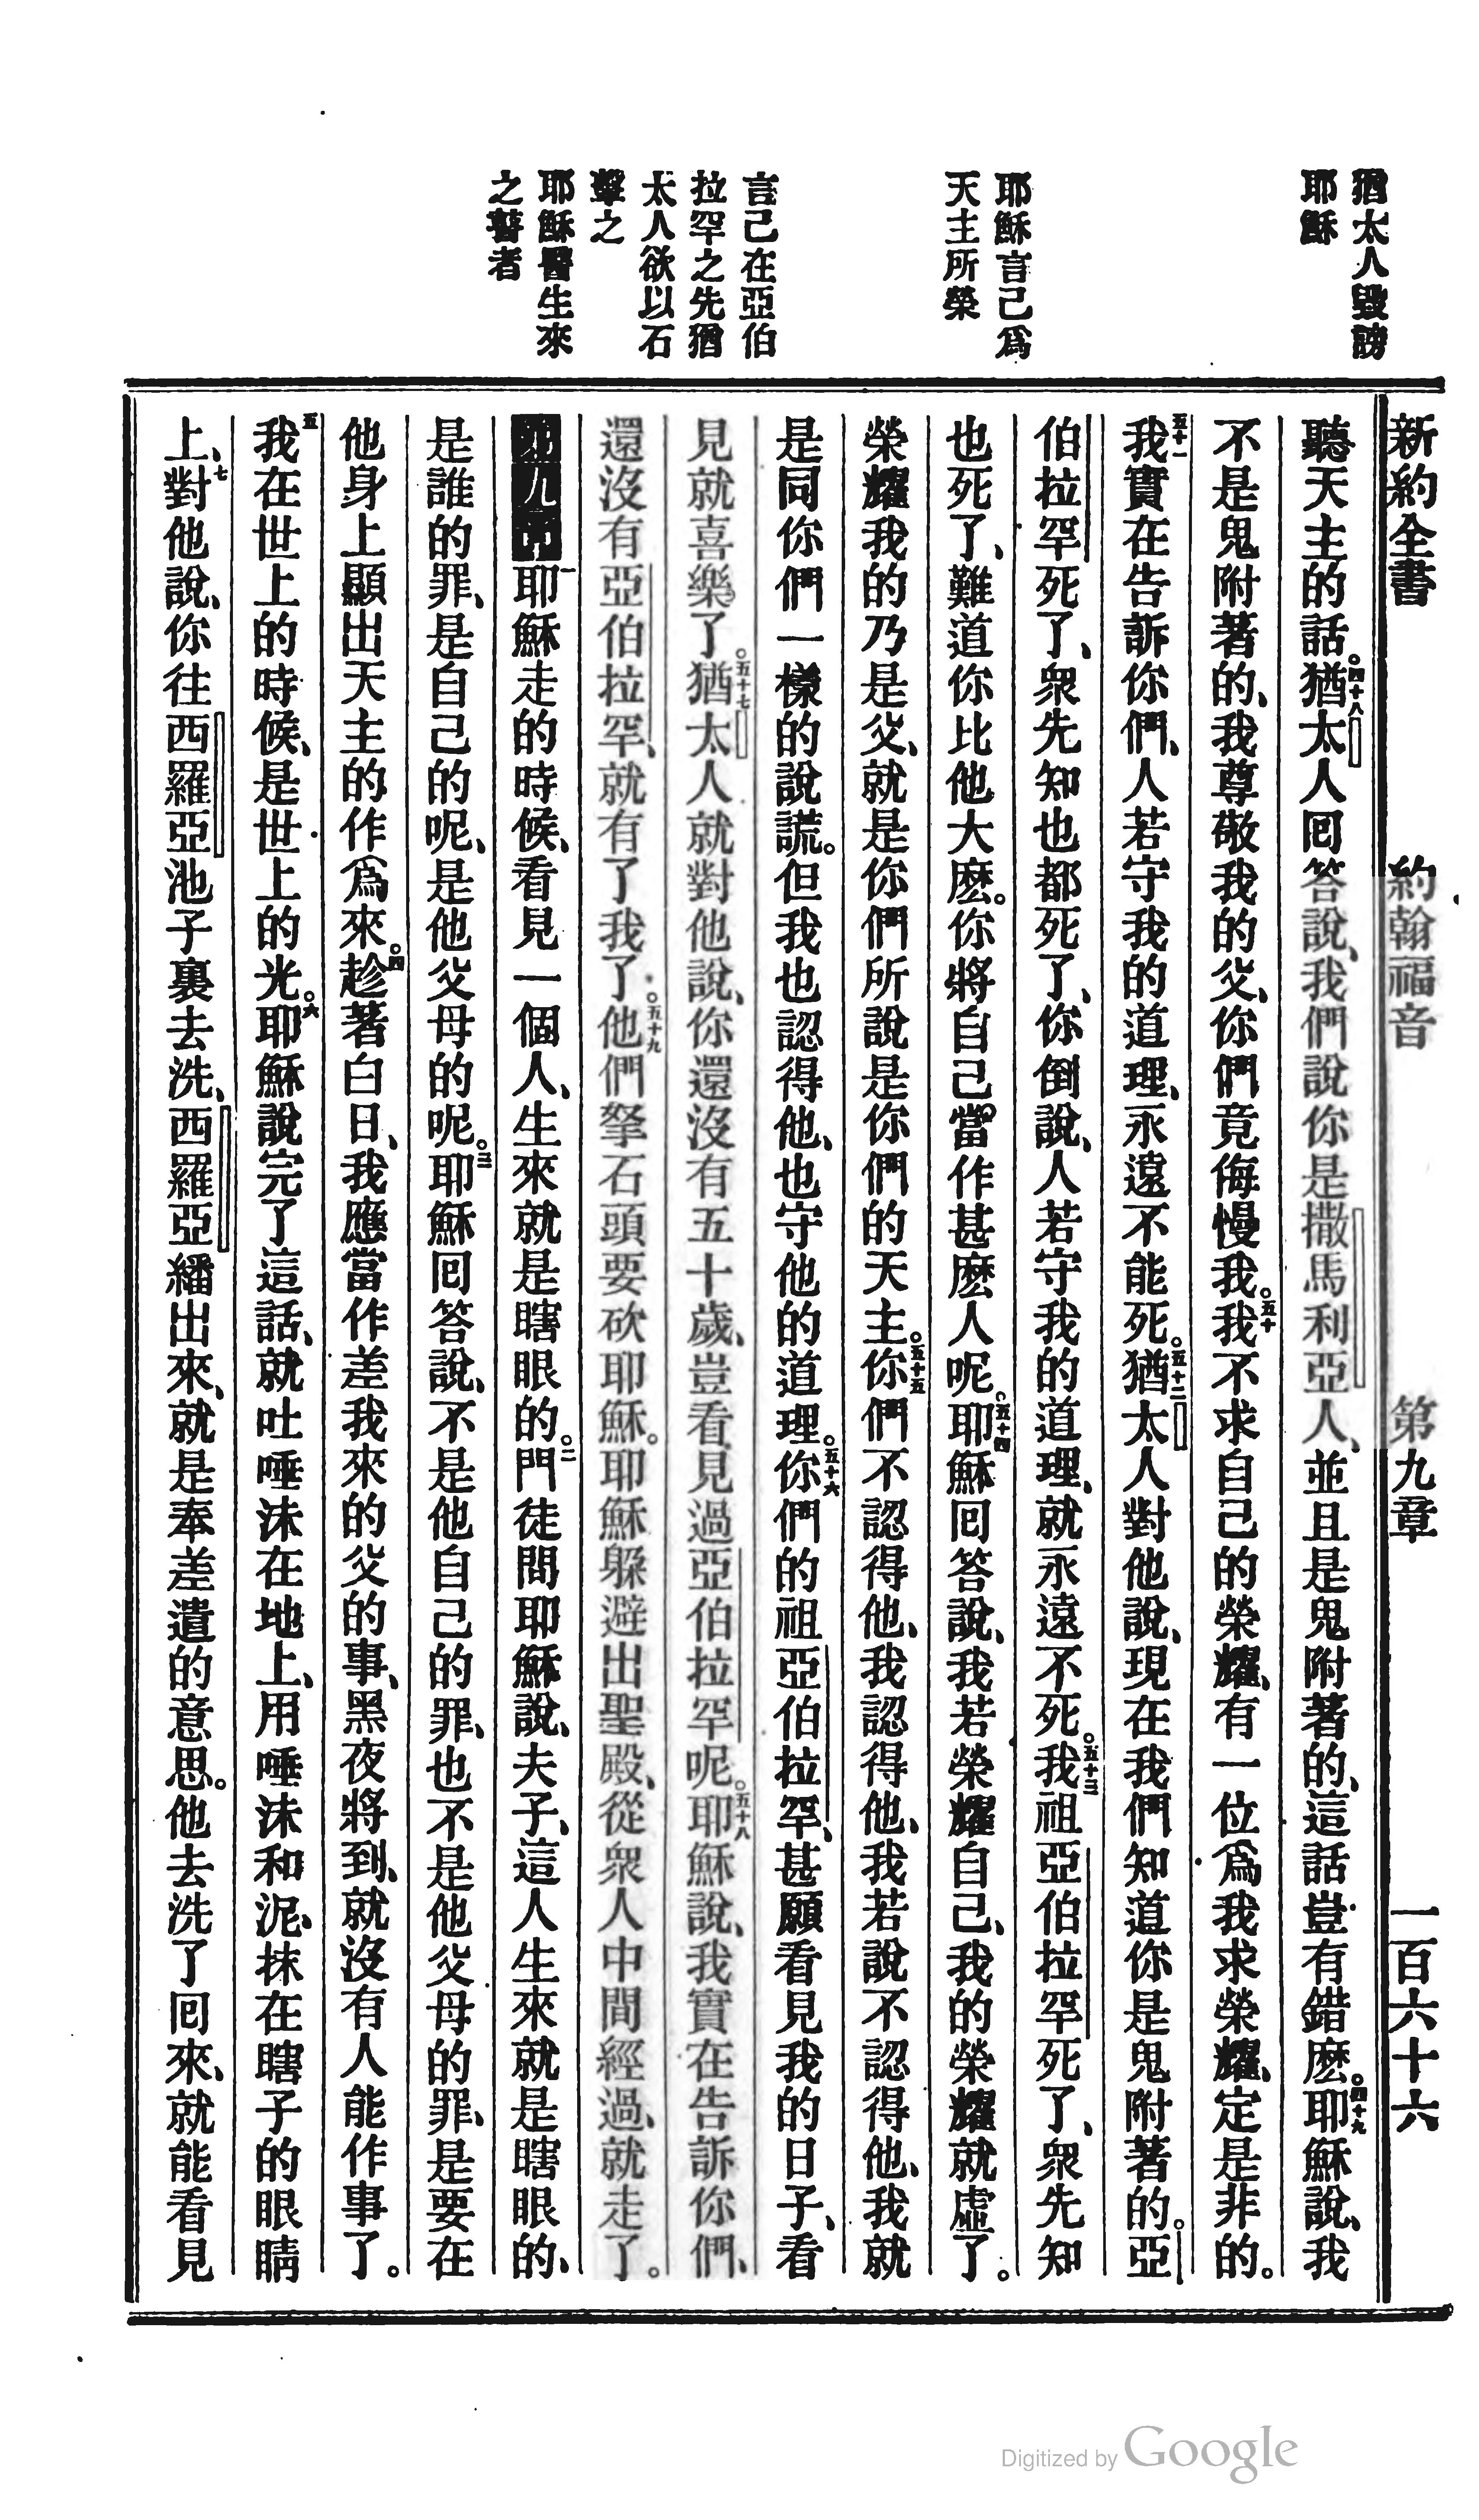 新約全書 約翰福音 第九章 一百六十六
猶太人毀謗
耶穌
耶穌言己爲
天主所榮
言己在亞伯
拉罕之先猶
太人欲以石
擊之
耶穌醫生來
之瞽者
聽天主的話。四十八猶太人回答說、我們說你是撒馬利亞人、並且是鬼附著的、這話豈有錯麽。四十九耶穌說、我
不是鬼附著的、我尊敬我的父、你們竟侮慢我。五十我不求自己的榮耀、有一位爲我求榮耀、定是非的。
五十一我實在告訴你們、人若守我的道理、永遠不能死。五十二猶太人對他說、現在我們知道你是鬼附著的。亞
伯拉罕死了、衆先知也都死了、你倒說、人若守我的道理、就永遠不死。五十三我祖亞伯拉罕死了、衆先知
也死了、難道你比他大麽。你將自己當作甚麽人呢。五十四耶穌回答說、我若榮耀自己、我的榮耀就虛了。
榮耀我的乃是父、就是你們所說是你們的天主。五十五你們不認得他、我認得他、我若說不認得他、我就
是同你們一樣的說謊。但我也認得他、也守他的道理。五十六你們的祖亞伯拉罕、甚願看見我的日子、看
見就喜樂了。五十七猶太人就對他說、你還沒有五十歲、豈看見過亞伯拉罕呢。五十八耶穌說、我實在告訴你們、
還沒有亞伯拉罕、就有了我了。五十九他們拏石頭要砍耶穌。耶穌躲避出聖殿、從衆人中間經過、就走了。
第九章 一耶穌走的時候、看見一個人、生來就是瞎眼的。二門徒問耶穌說、夫子、這人生來就是瞎眼的、
是誰的罪、是自己的呢、是他父母的呢。三耶穌回答說、不是他自己的罪、也不是他父母的罪、是要在
他身上顯出天主的作爲來。四趁著白日、我應當作差我來的父的事、黑夜將到、就沒有人能作事了。
五我在世上的時候、是世上的光。六耶穌說完了這話、就吐唾沫在地上、用唾沫和泥、抹在瞎子的眼睛
上、七對他說、你往西羅亞池子裏去洗、西羅亞繙出來、就是奉差遣的意思。他去洗了回來、就能看見
Digitized by Google